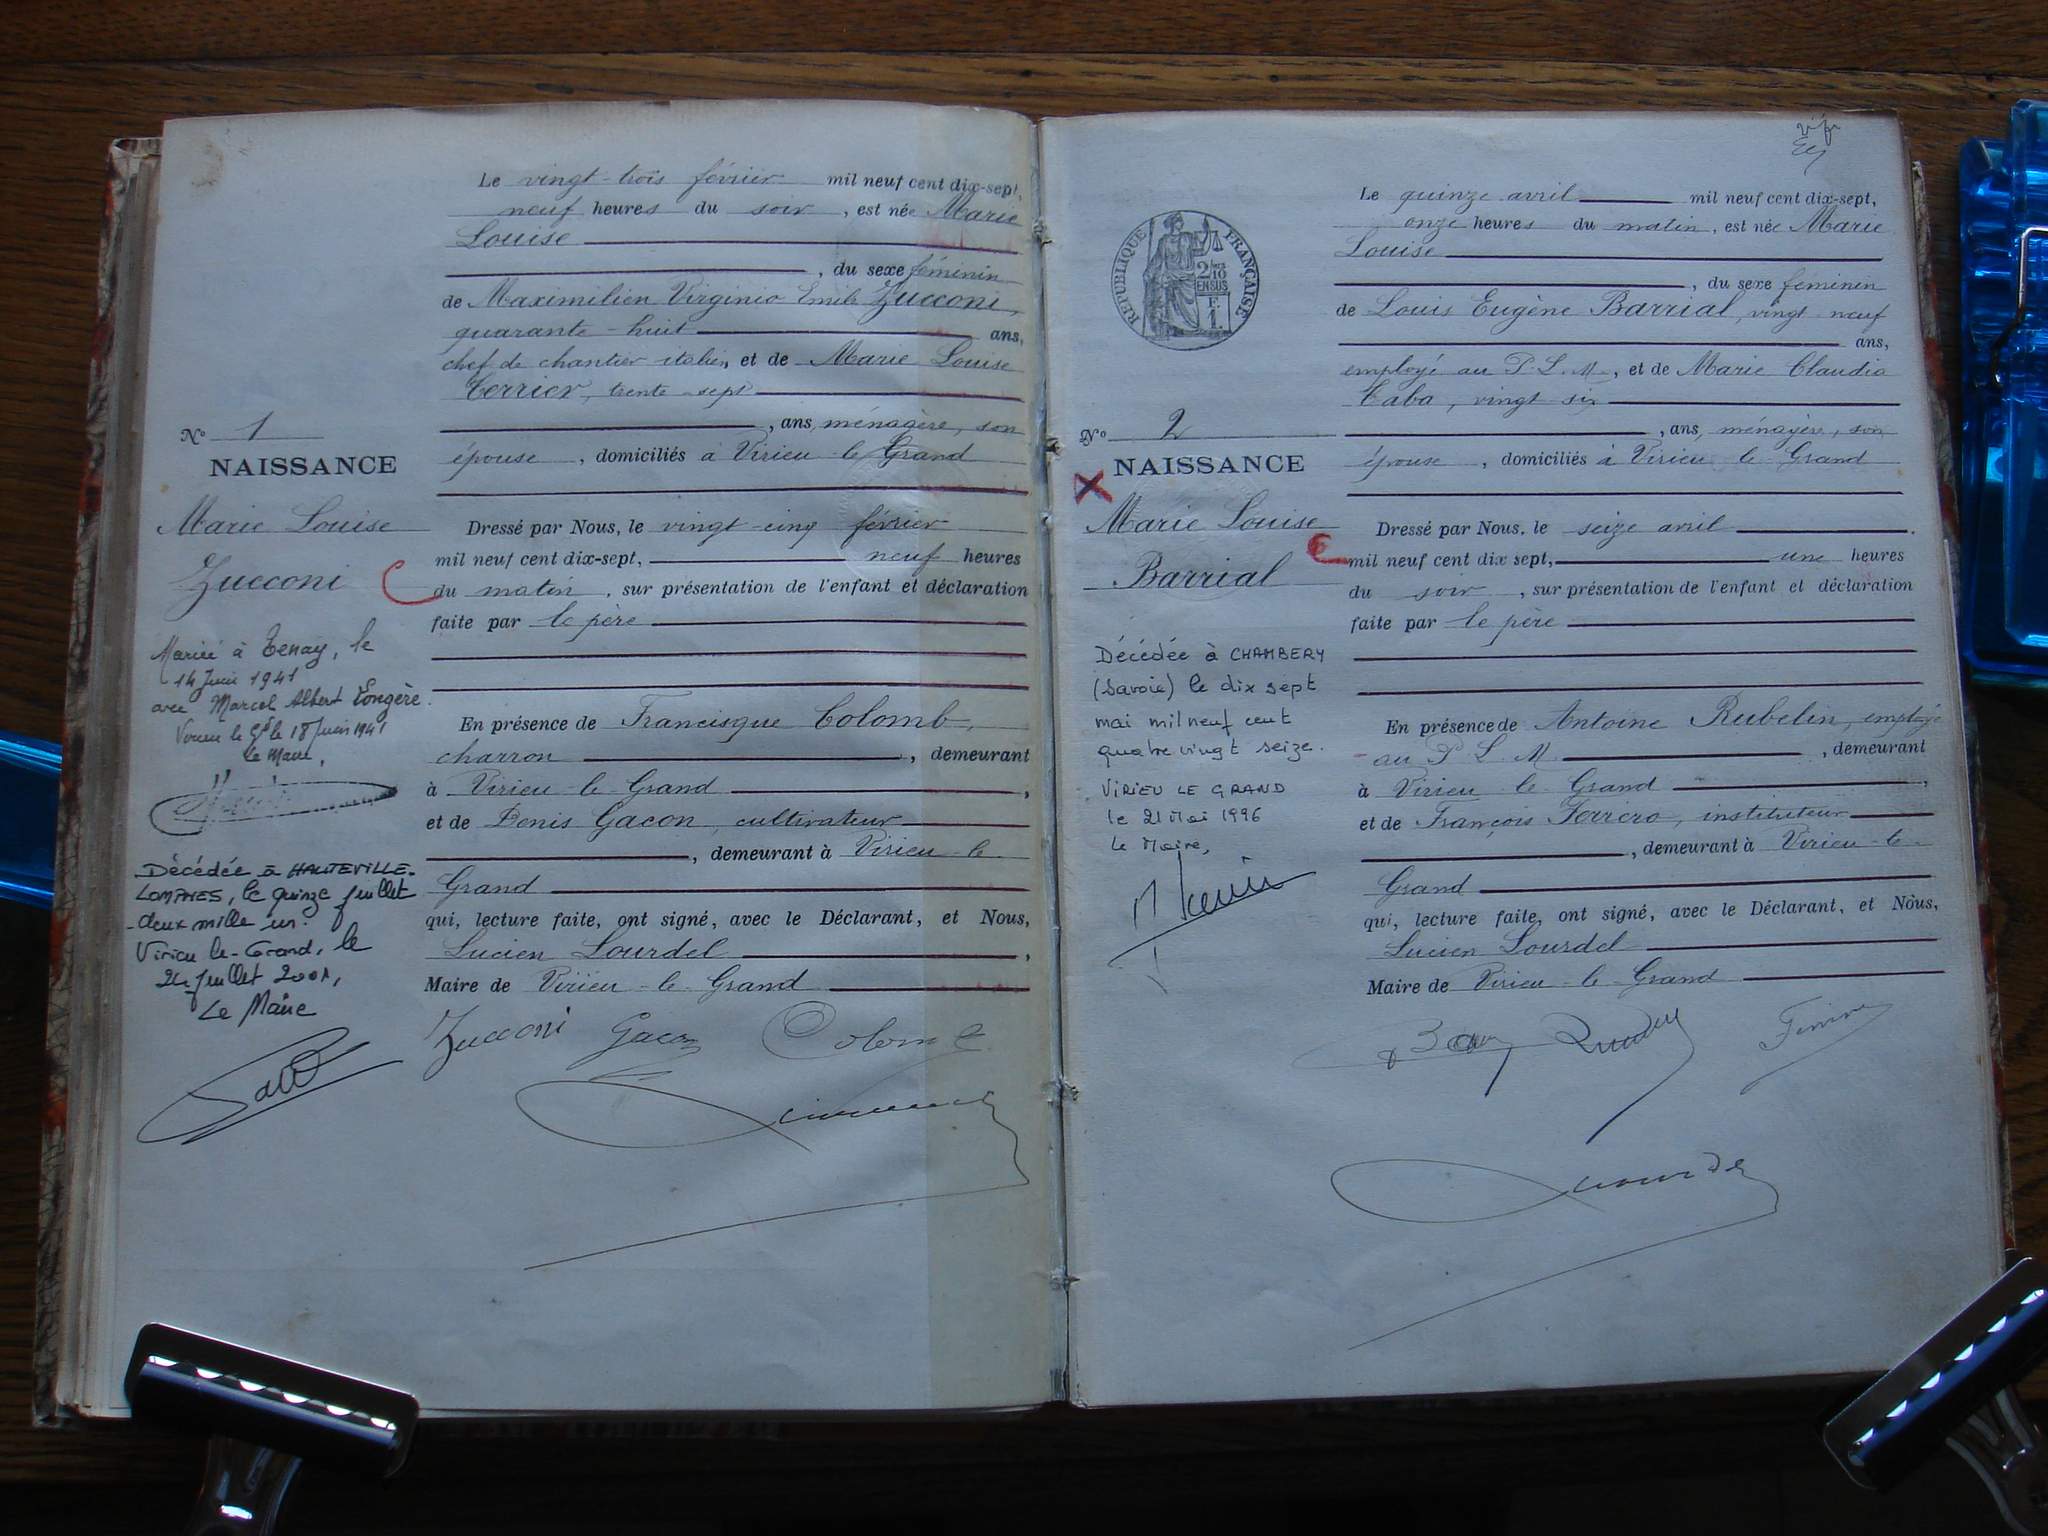 Le vingt-trois février mil neuf cent dix-sept,
neuf heures du soir, est née Marie
Louise
, du sexe féminin
de Maximilien Virginio Emile Zucconi,
quarante-huit ans,
chef de chantier italien, et de Marie Louise
Terrier, trente-sept
, ans, ménagère, son
épouse, domiciliés à Virieu-le-Grand
Dressé par Nous, le vingt-cinq février
mil neuf cent dix-sept, neuf heures
du matin, sur présentation de l'enfant et déclaration
faite par le père
En présence de Francisque Colomb,
charron, demeurant
à Virieu-le-Grand,
et de Denis Gacon, cultivateur
, demeurant à Virieu-le-
Grand
qui, lecture faite, ont signé, avec le Déclarant, et Nous,
Lucien Lourdel,
Maire de Virieu-le-Grand
Zucconi Gacon Colomb
N° 1
NAISSANCE
Marie Louise
Zucconi
Mariée à Tenay, le
14 Juin 1941
avec Marcel Albert Longère.
Virieu le Gd le 18 Juin 1941
Le Maire,
Décédée à HAUTEVILLE-
LOMPNES, le quinze juillet
deux mille un.
Virieu-le-Grand, le
24 Juillet 2001,
Le Maire
Le quinze avril mil neuf cent dix-sept,
onze heures du matin, est née Marie
Louise
, du sexe féminin
de Louis Eugène Barrial, vingt-neuf
ans,
employé au P.L.M., et de Marie Claudia
Caba, vingt-six
, ans, ménagère, son
épouse, domiciliés à Virieu-le-Grand
Dressé par Nous, le seize avril
mil neuf cent dix sept, une heures
du soir, sur présentation de l'enfant et déclaration
faite par le père
En présence de Antoine Rubelin, employé
au P.L.M., demeurant
à Virieu-le-Grand,
et de François Ferrero, instituteur
, demeurant à Virieu-le-
Grand
qui, lecture faite, ont signé, avec le Déclarant, et Nous,
Lucien Lourdel
Maire de Virieu-le-Grand
RÉPUBLIQUE FRANÇAISE
2/10
EN SUS
F.
1.
N° 2
NAISSANCE
Marie Louise
Barrial
Décédée à CHAMBERY
(Savoie) le dix sept
mai mil neuf cent
quatre vingt seize.
VIRIEU LE GRAND
le 21 Mai 1996
Le Maire,